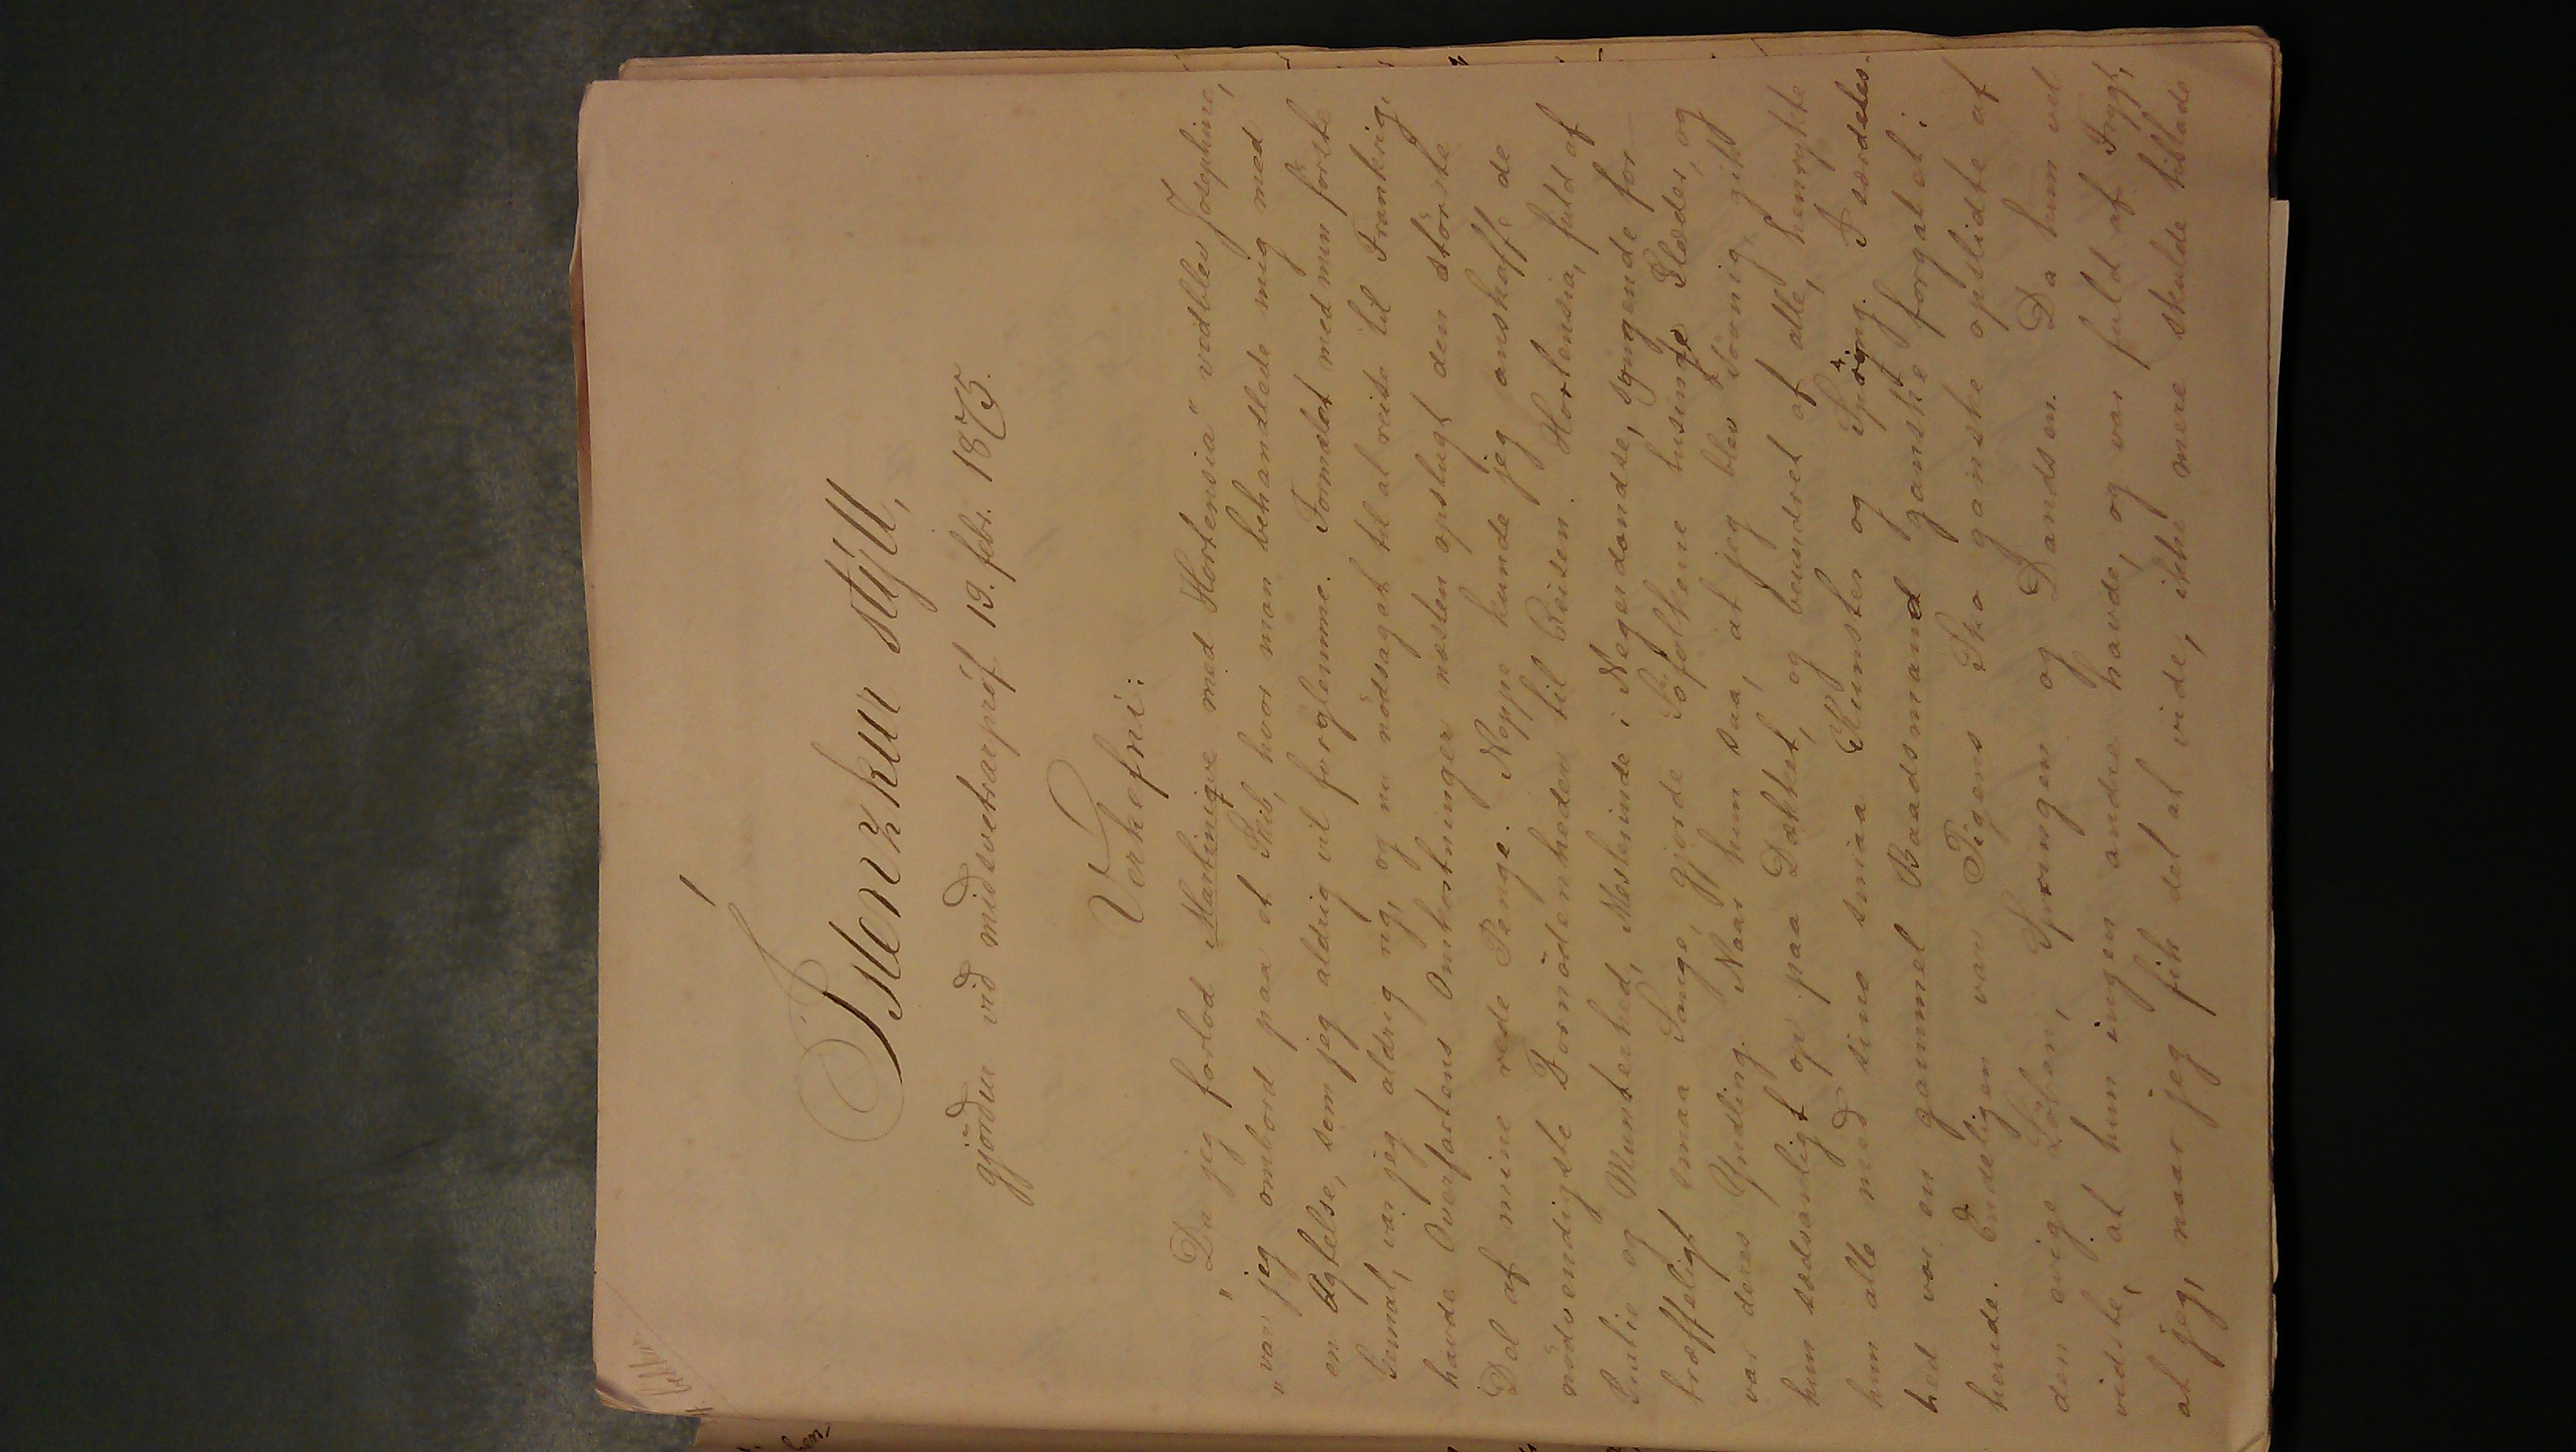 Íslenzkur stýll,
gjörður við miðsvetrarpróf 19. febr. 1875.
Verkefni:
„Da jeg forlod Martinique med Hortensia" vedblev Josephine,
„var jeg ombord paa et Skib, hvor man behandlede mig med
en Agtelse, som jeg aldrig vil forglemme. Formælet med min förste
Gemal, var jeg aldrig rig, og nu nödsaget til at reise til Frankrig,
havde Overfartens Omkostninger næsten opslugt den störste
Del af mine rede Penge. Neppe kunde jeg anskaffe de
nödvendigste Fornödenheder til Reisen. Hortensia, fuld af
Gratie og Munterhed, Mesterinde i Negerdandse, syngende for-
træffeligt smaa Sange, gjorde Söfolkene tusinde Glæder, og
var deres Yndling. Naar hun saa, at jeg blev sövnig, gik
hun sædvanligt op paa Dækket, og beundret af alle, henrykte
hun alle med sine smaa Kunster og Spring. I særdeles-
hed var en gammel Baadsmand ganske forgabet i
hende. Endeligen var Pigens Sko ganske opslidte af
den evige Löben, Springen og Dandsen. Da hun vel
vidste, at hun ingen andre havde, og var fuld af Frygt,
at jeg, naar jeg fik det at vide, ikke mere skulde tillade